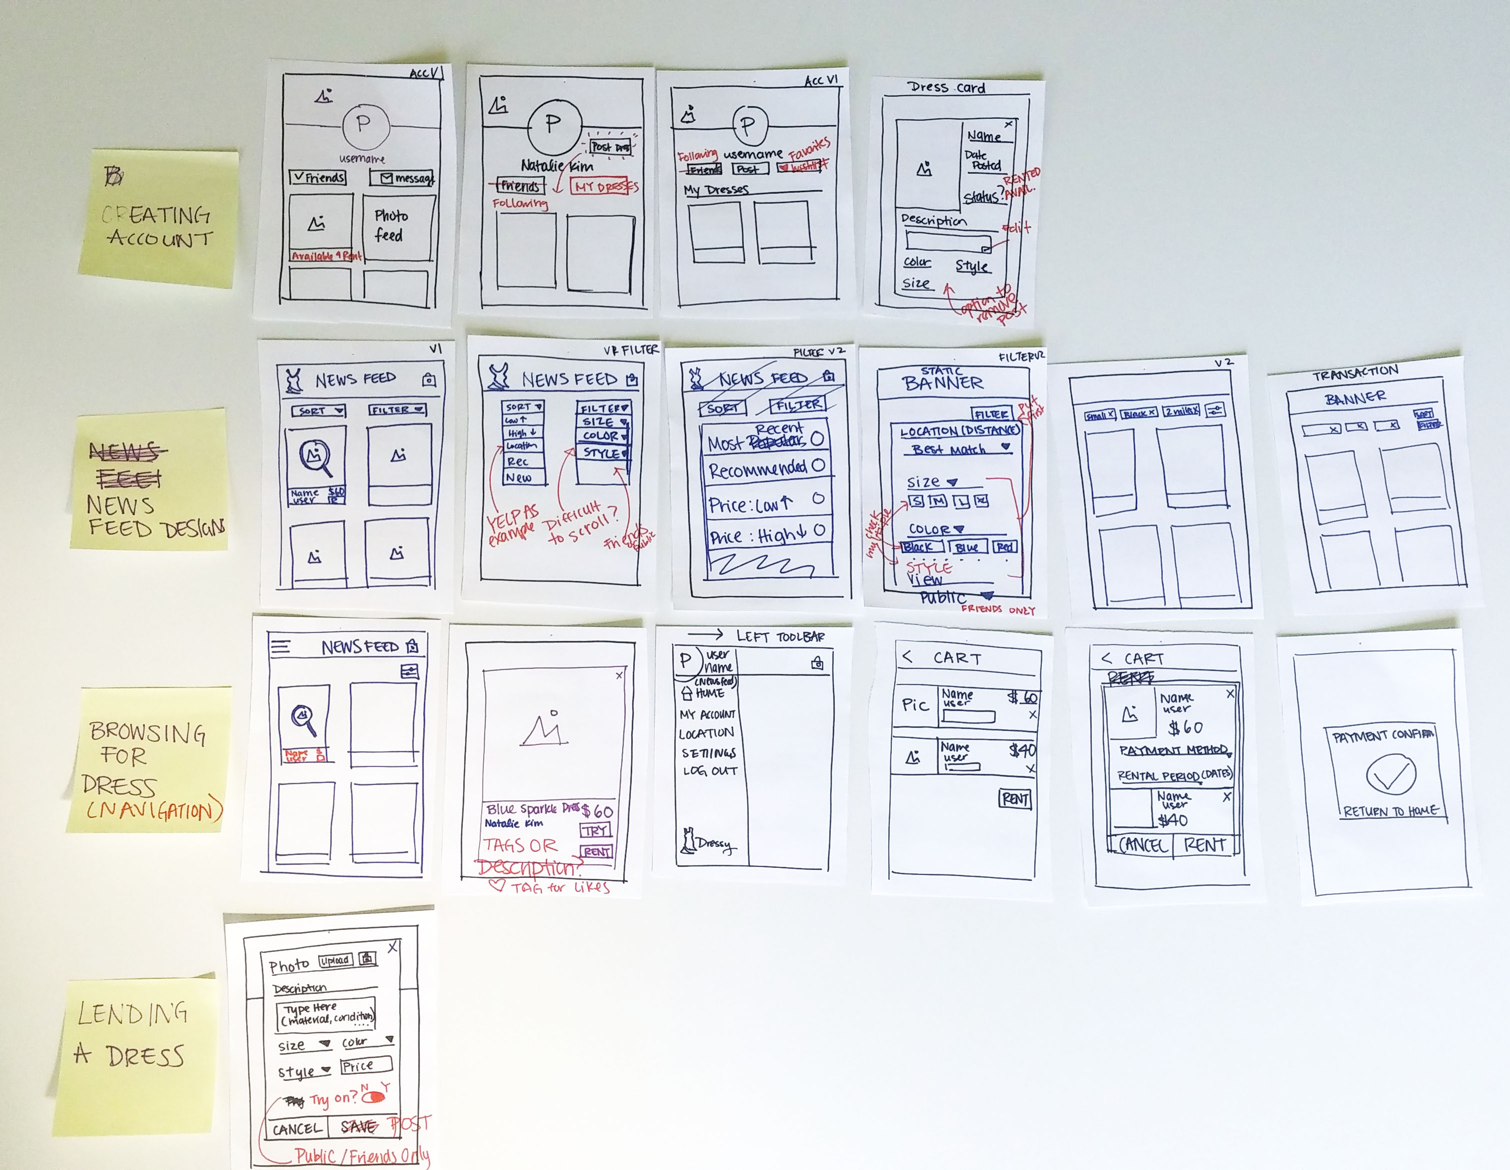 CREATING
ACCOUNT
ACC V1
P
username
✓Friends
message
Photo
feed
Available 4 Rent
P
Post Dress
Natalie Kim
Friends
MY DRESSES
Following
ACC V1
P
Following
username
Favorites
Friend
Post
wishlist
My Dresses
Dress card
x
Name
Date
Posted
Status?
RENTED
AVAIL.
Description
edit
color
Style
size
option to
remove
post
NEWS
FEED
NEWS
FEED DESIGNS
V1
NEWS FEED
SORT
FILTER
Name $60
user
VR FILTER
NEWS FEED
SORT
Low ↑
High ↓
Location
Rec
New
FILTER
SIZE
COLOR
STYLE
YELP AS
example
Difficult
to scroll?
Friends
public
FILTER V2
NEWS FEED
SORT
FILTER
Recent
Most Popular
Recommended
Price: Low ↑
Price: High ↓
FILTER V2
STATIC
BANNER
FILTER
put
first
LOCATION (DISTANCE)
Best Match
Size
S M L XL
COLOR
Black Blue Red
STYLE
View
Public
FRIENDS ONLY
V2
Small x
Black x
2 miles x
TRANSACTION
BANNER
x x x
SORT
FILTER
BROWSING
FOR
DRESS
(NAVIGATION)
NEWS FEED
Name $
user
x
Blue Sparkle Dress $60
Natalie Kim
TRY
TAGS OR
RENT
Description?
♡ TAG for Likes
→ LEFT TOOLBAR
P
user
name
(Newsfeed)
HOME
MY ACCOUNT
LOCATION
SETTINGS
LOG OUT
Dressy
< CART
Pic
Name
user
$60
x
Name
user
$40
x
RENT
< CART
x
Name
user
$60
PAYMENT METHOD
RENTAL PERIOD (DATES)
Name
user
x
$40
CANCEL
RENT
PAYMENT CONFIRM
RETURN TO HOME
LENDING
A DRESS
x
Photo
Upload
Description
Type Here
(material, condition)
....
size
color
Style
Price
Try on?
N Y
CANCEL
SAVE
POST
Public / Friends Only